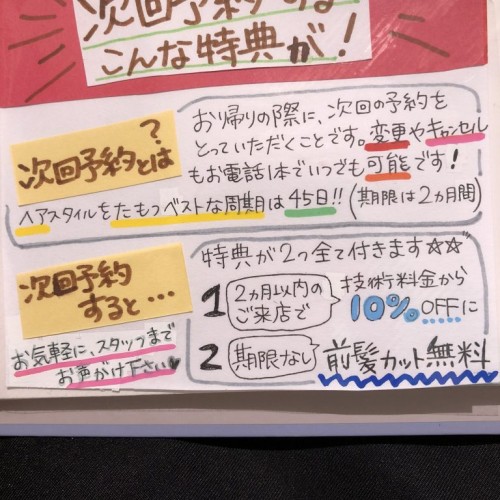 次回予約する
こんな特典が！
次回予約とは？
おり帰りの際に、次回の予約を
とっていただくことです。変更やキャンセル
もお電話1本でいつでも可能です！
ヘアスタイルをたもつベストな周期は45日!!（期限は2ヵ月間）
次回予約
すると…
お気軽に、スタッフまで
お声がけ下さい♥
特典が2つ全て付きます☆☆
1 2ヵ月以内の
ご来店で
技術料金から
10%OFFに
2 期限なし 前髪カット無料